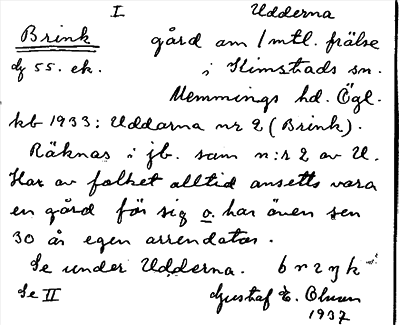 I Udderna
Brink gård om 1 mtl. frälse
dj 55. ek. i Kimstads sn.
Memmings hd. Ögl.
kb 1933: Uddarna nr 2 (Brink).
Räknas i jb. som n:r 2 av U.
Har av folket alltid ansetts vara
en gård för sig o. har även sen
30 år egen arrendator.
Se under Udderna. brıŋk
Se II Gustaf E. Olsson
1937